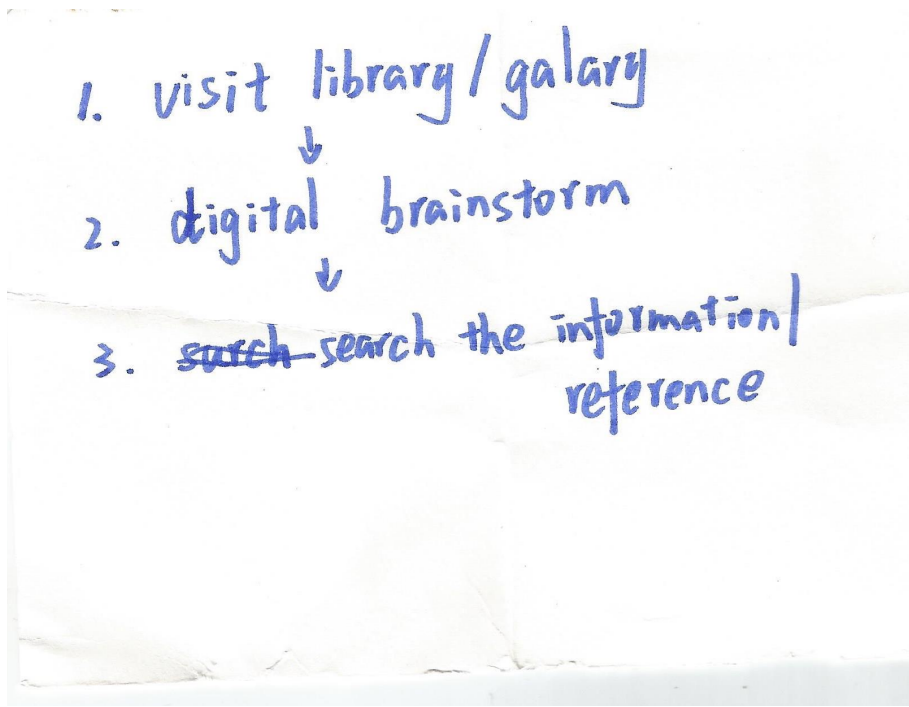 1. visit library/galary
↓
2. digital brainstorm
↓
3. surch search the information/
reference